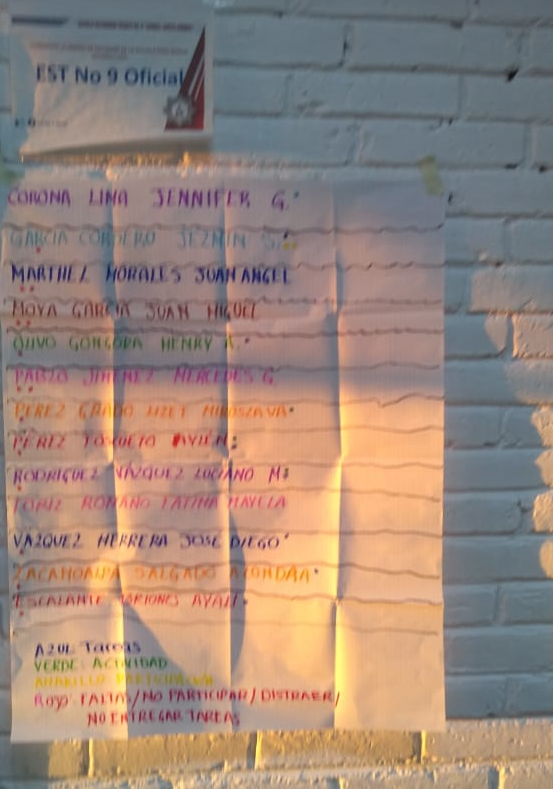 EST No 9 Oficial
CORONA LIMA JENNIFER G.
GARCIA CORDERO JEZMIN S.
MARTHEZ MORALES JUAN ANGEL
MOYA GARCIA JUAN MIGUEL
OLIVO GONGORA HENRY A.
PABLO JIMENEZ MERCEDES G.
PEREZ GRADO LIZET MIROSLAVA
PEREZ AYLIN
RODRIGUEZ VAZQUEZ LUCIANO M
TORIZ ROMANO FATIMA MAYELA
VAZQUEZ HERRERA JOSE DIEGO
SALGADO
ESCALANTE
AZUL Tareas
VERDE ACTIVIDAD
AMARILLO PARTICIPACION
ROJO FALTAS/NO PARTICIPAR/DISTRAER/
NO ENTREGAR TAREAS